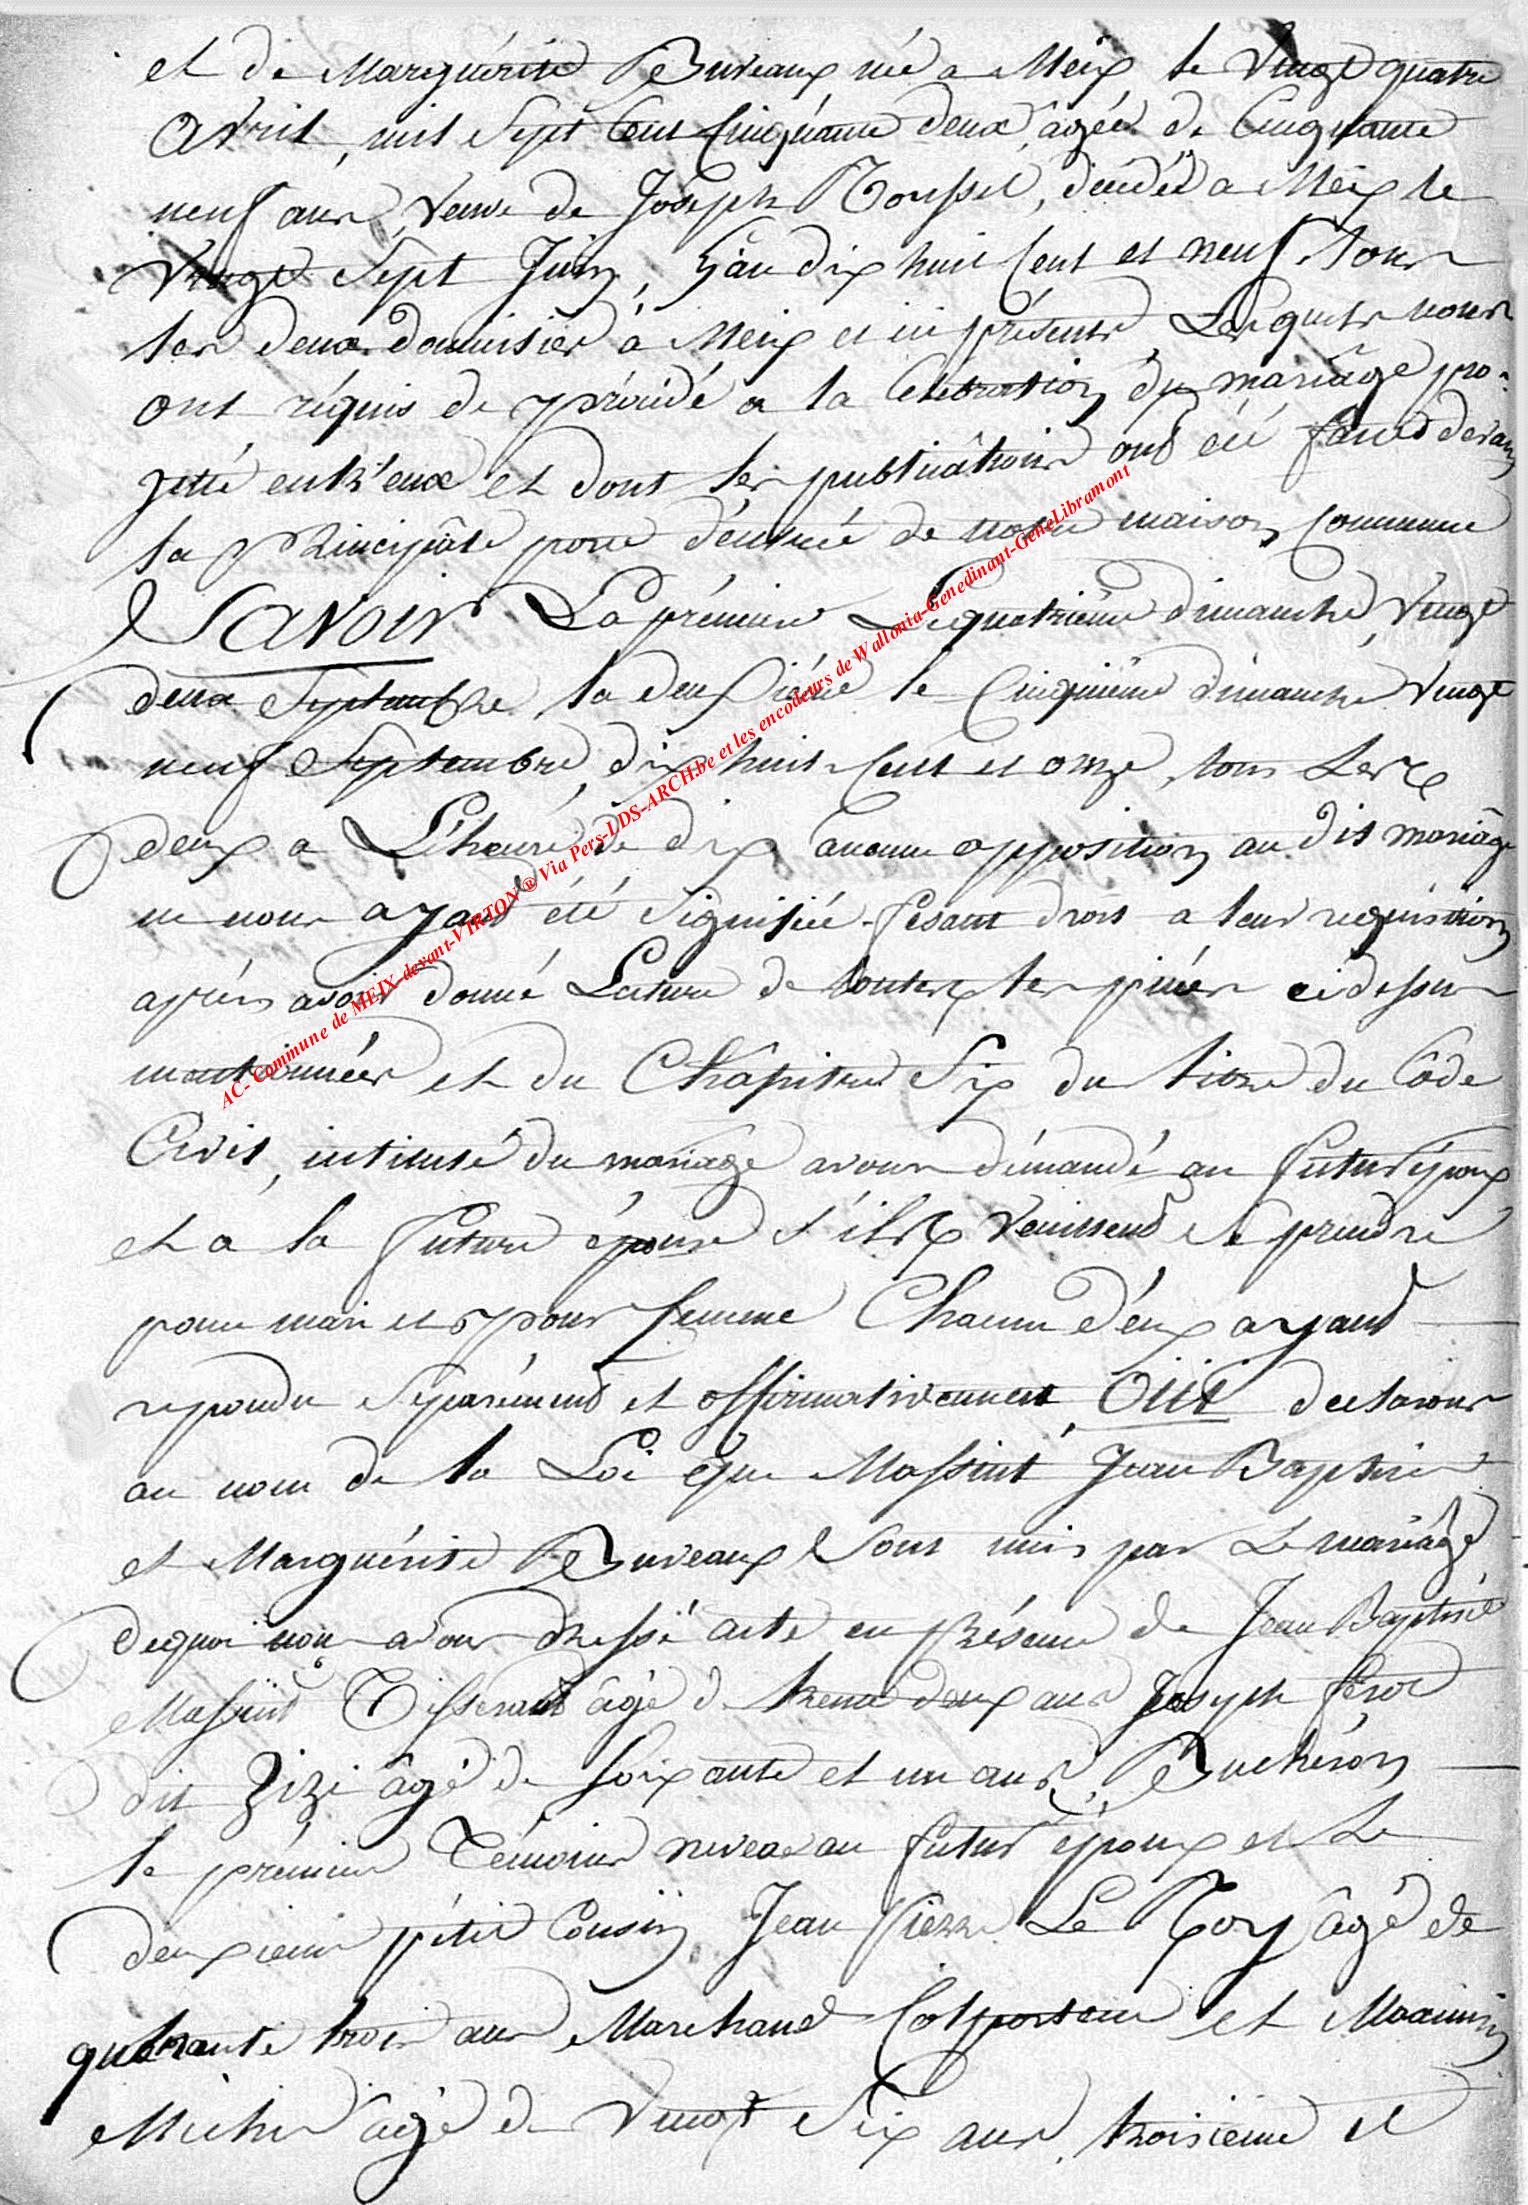 et de Marguérite Buveaux née a Meix le Vingt quatre
Avril, mil Sept Cent Cinquante deux, âgée de Cinquante
neuf ans, Veuve de Joseph Roussel, décédé a Meix le
Vingt Sept Juin, L'an dix huit Cent et neuf, tous
les deux domicilier à Meix et ici présents, Lesquels nous
ont réquis de procédé a la Célébration du mariâge pro-
jetté entr'eux et dont les publicâtions ont été faites devant
la Principâle porte d'entrée de notre maison Commune
Savoir La prémiere Le quatrième dimanche, Vingt
deux Septembre, la deuxième le Cinquième dimanche Vingt
neuf Septembre, dix huit Cent et onze, tous Les
deux a L'heure de dix aucune opposition au dit mariâge
ne nous ayant été Signifiée fesant droit a leur requisition
après avoir donné Lecture de toutes les pièces ci dessus
mentionnées et du Châpitre Six du titre du Côde
Civil, intitulé du mariage avons démandé au futur époux
et a la future épouse s'ils Veuillent Se prendre
pour mari et pour femme Chacun d'eux ayant
repondu Séparément et affirmativement, Oüi declarons
au nom de la Loi que Massint Jean Baptiste
et Marguérite Buveaux Sont unis par Le mariâge
de quoi nous avons dressé acte en présence de Jean Baptiste
Massint Tisserant âgé de trente deux ans Joseph
dit Zizi âgé de Soixante et un ans, Bucheron
le prémier Témoins neveux au futur époux et Le
deuxième pétit Cousin Jean Pierre Le Roy âgé de
quarante trois ans Marchand Colporteur et Maximin
Michel âgé de Vingt Six ans, troisième et
AC- Commune de MEIX-devant-VIRTON ® Via Pers-LDS-ARCH.be et les encodeurs de Wallonia-Genedinant-GeneLibramont